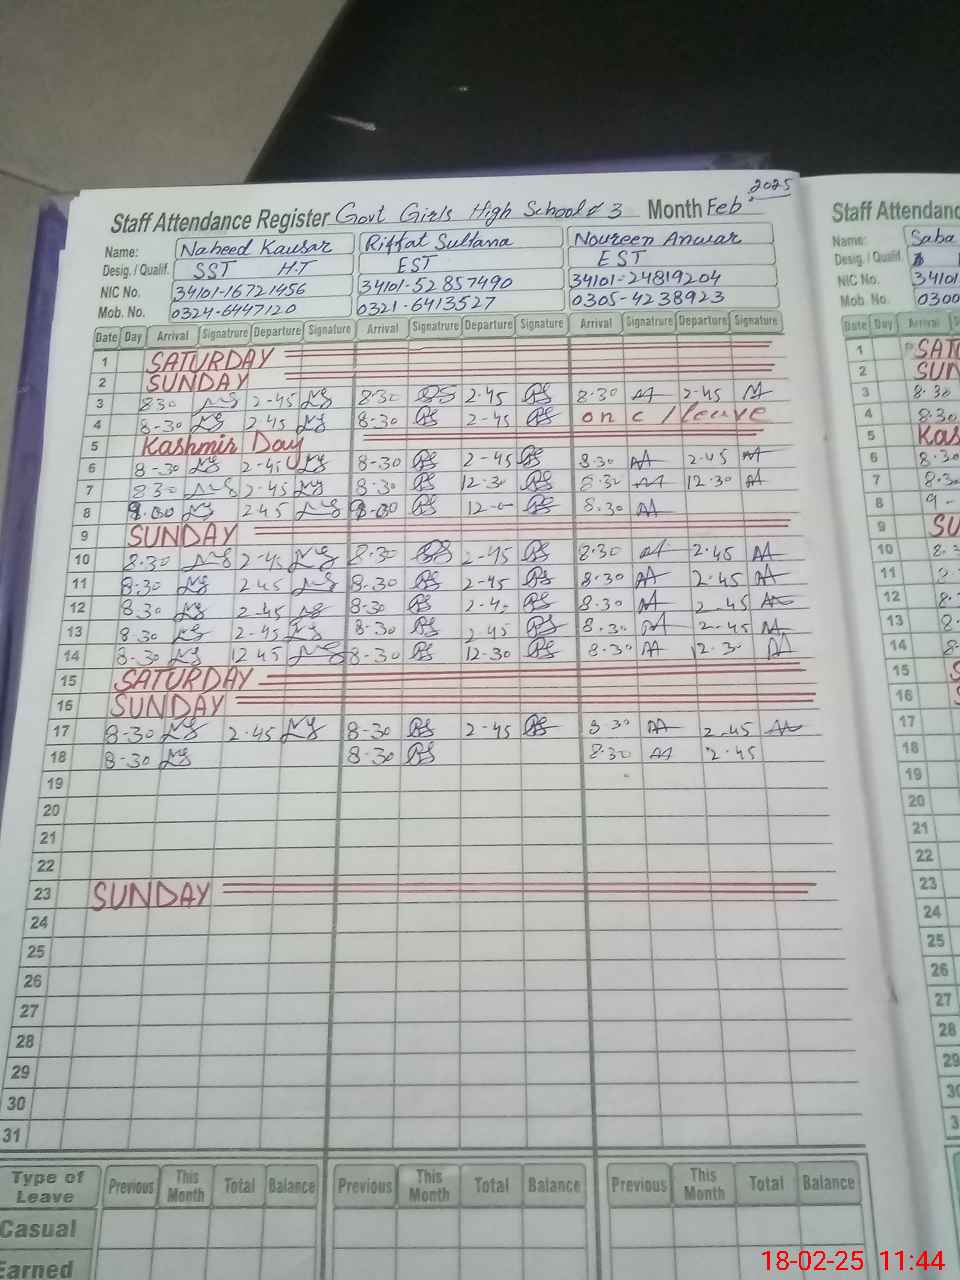 2025
Staff Attendance Register Govt Girls High School # 3 Month Feb
Name: Naheed Kausar Riffat Sultana Noureen Anwar
Desig. / Qualif. SST H.T EST EST
NIC No. 34101-16721456 34101-52857490 34101-24819204
Mob. No. 0324-6447120 0321-6413527 0305-4238923
Date Day Arrival Signatrure Departure Signature Arrival Signatrure Departure Signature Arrival Signatrure Departure Signature
1 SATURDAY
2 SUNDAY
3 830 2-45 8:30 2.45 8.30 2-45
4 8-30 2.45 8-30 2-45 on c/leave
5 Kashmir Day
6 8-30 2-45 8-30 2-45 8.30 2.45
7 830 2-45 8.30 12.30 8.30 12.30
8 9.00 245 12-0 8.30
9 SUNDAY
10 8.30 2-45 8.30 2-45 8.30 2.45
11 8.30 2.45 8-30 2-45 8.30 2.45
12 8.30 2-45 8-30 2-45 8.30 2.45
13 8.30 2-45 8.30 2.45 8.30 2-45
14 8-30 1245 8-30 12-30 8.30 12.30
15 SATURDAY
16 SUNDAY
17 8-30 2.45 8-30 2-45 8.30 2.45
18 8-30 8-30 8.30 2.45
19
20
21
22
23 SUNDAY
24
25
26
27
28
29
30
31
Type of Leave Previous This Month Total Balance Previous This Month Total Balance Previous This Month Total Balance
Casual
Earned
Staff Attendanc
Name: Saba
Desig. / Qualif.
NIC No. 34101
Mob. No. 0300
Date Day Arrival
1 SAT
2 SUN
3 8.30
4 8.30
5 Kas
6 8.30
7 8.30
8 9-
9 SU
10
11
12
13
14
15
16
17
18
19
20
21
22
23
24
25
26
27
28
29
18-02-25 11:44